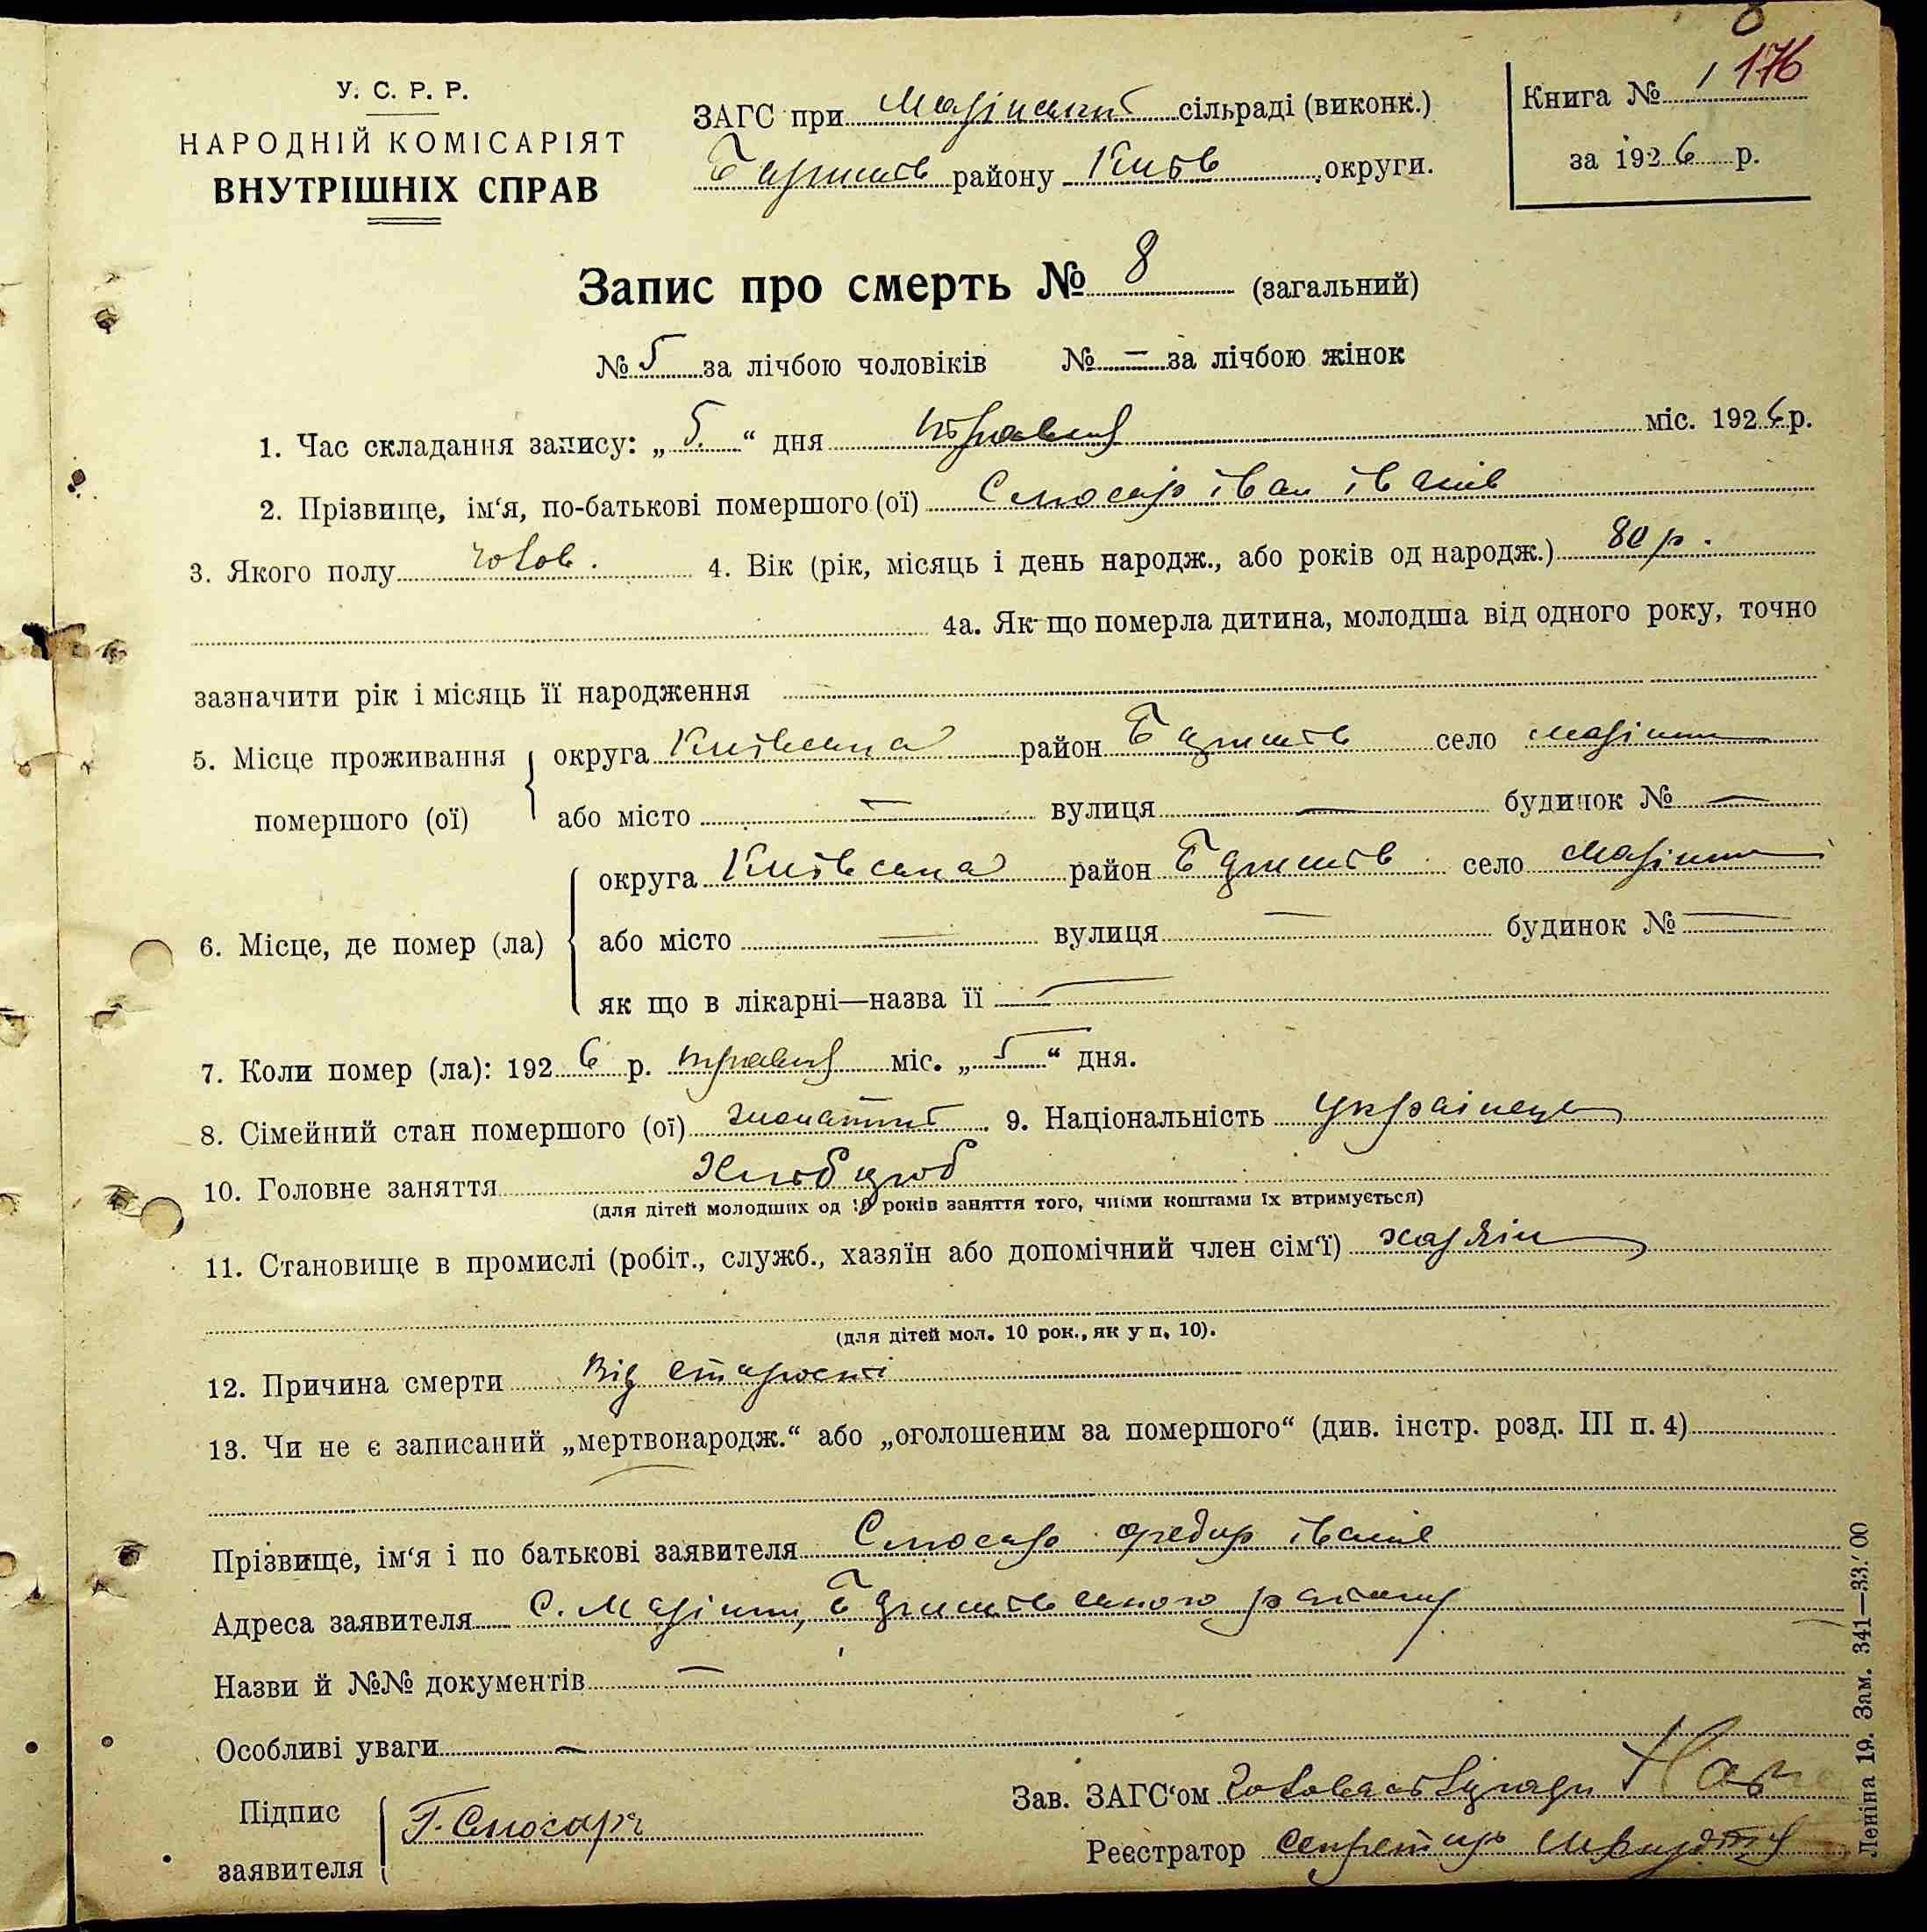 У. С. Р. Р.
НАРОДНІЙ КОМІСАРІЯТ
ВНУТРІШНІХ СПРАВ
ЗАГС при сільраді (виконк.)
району Київ округи.
Книга № 1 176
за 1926 р.
Запис про смерть № 8 (загальний)
№ 5 за лічбою чоловіків № — за лічбою жінок
1. Час складання запису: „5.“ дня травня міс. 1926 р.
2. Прізвище, ім‘я, по-батькові помершого (ої) Слюсар іван іванів
3. Якого полу чолов. 4. Вік (рік, місяць і день народж., або років од народж.) 80 р.
4а. Як що померла дитина, молодша від одного року, точно
зазначити рік і місяць її народження
5. Місце проживання помершого (ої) округа Київська район село
або місто — вулиця — будинок № —
6. Місце, де помер (ла) округа Київська район село
або місто — вулиця — будинок № —
як що в лікарні—назва її —
7. Коли помер (ла): 1926 р. травня міс. „5“ дня.
8. Сімейний стан помершого (ої) жонатий. 9. Національність Українець
10. Головне заняття Хлібороб
(для дітей молодших од 10 років заняття того, чиїми коштами їх втримується)
11. Становище в промислі (робіт., служб., хазяїн або допомічний член сім‘ї) хазяїн
(для дітей мол. 10 рок., як у п. 10).
12. Причина смерти Від старости
13. Чи не є записаний „мертвонародж.“ або „оголошеним за помершого“ (див. інстр. розд. III п. 4)
—
Прізвище, ім‘я і по батькові заявителя Слюсар федир іванів
Адреса заявителя С. району
Назви й №№ документів —
Особливі уваги —
Підпис заявителя Слюсарь
Зав. ЗАГС‘ом Голова сільради
Реєстратор секретарь
Леніна 19. Зам. 341—33.‘00